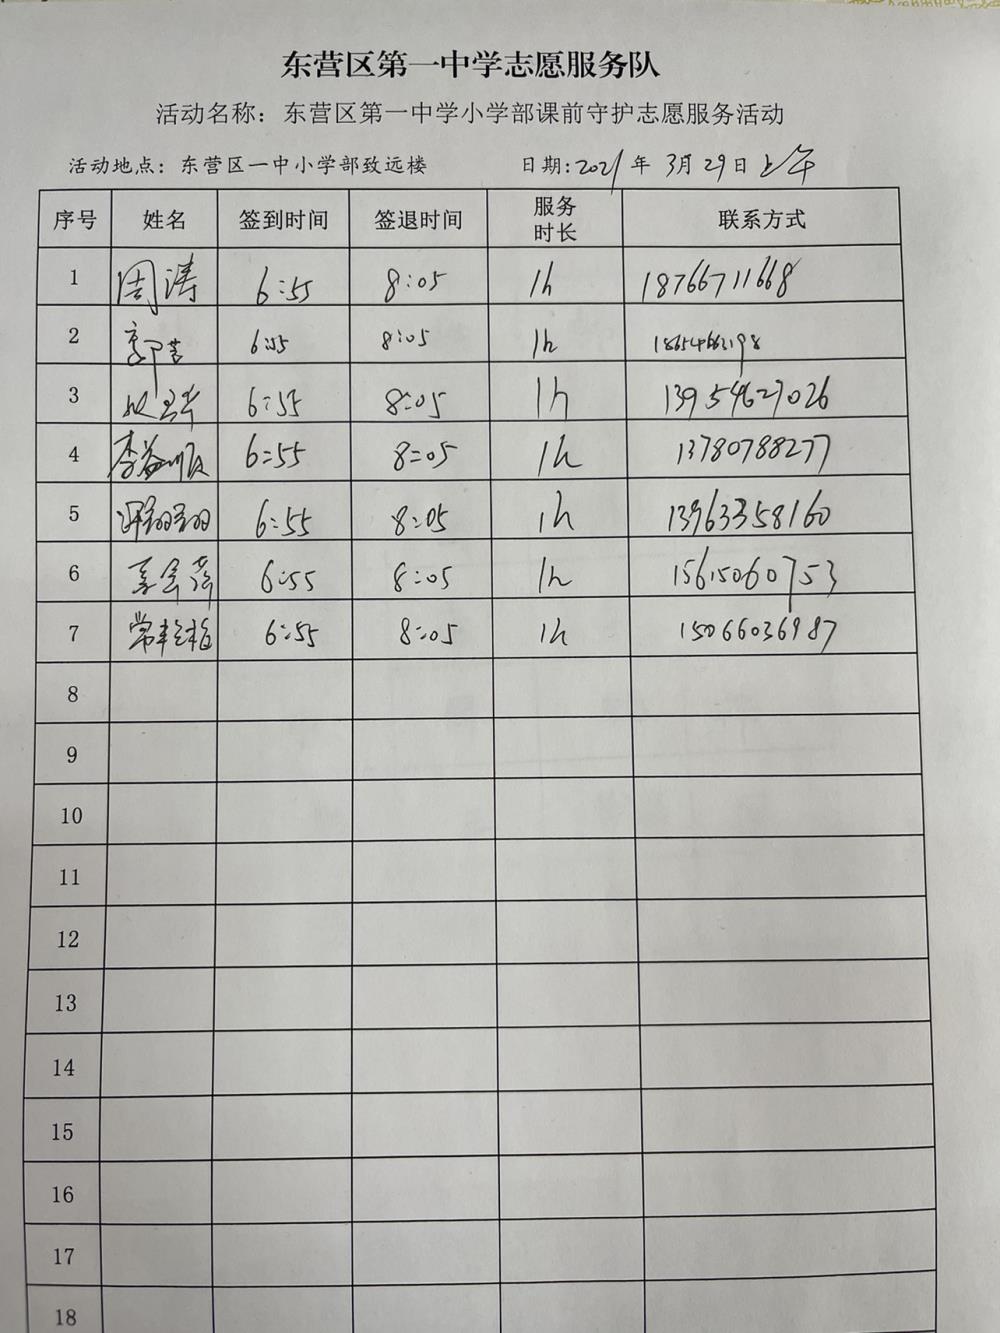 东营区第一中学志愿服务队
活动名称：东营区第一中学小学部课前守护志愿服务活动
活动地点：东营区一中小学部致远楼 日期:2021年 3月29日上午
序号 姓名 签到时间 签退时间 服务时长 联系方式
1 周涛 6:55 8:05 1h 18766711668
2 郭营 6:55 8:05 1h
3 6:55 8:05 1h 13954627026
4 李益顺 6:55 8:05 1h 13780788277
5 6:55 8:05 1h 13963358160
6 6:55 8:05 1h 15615060753
7 6:55 8:05 1h 15066036987
8
9
10
11
12
13
14
15
16
17
18